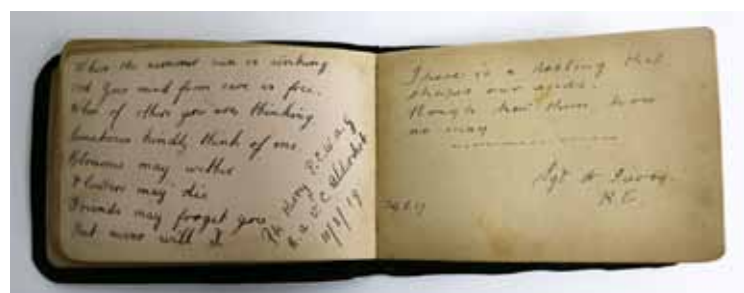 When the summer sun is sinking
And your mind from care is free.
When of others you are thinking
Sometimes kindly think of me.
Blossoms may wither
Flowers may die
Friends may forget you
But never will I.
Pte Harry
R.A.V.C. Aldershot
10/8/19
There is a destiny that
shapes our ends.
Rough hew them, how
we may
Sgt
R.E.